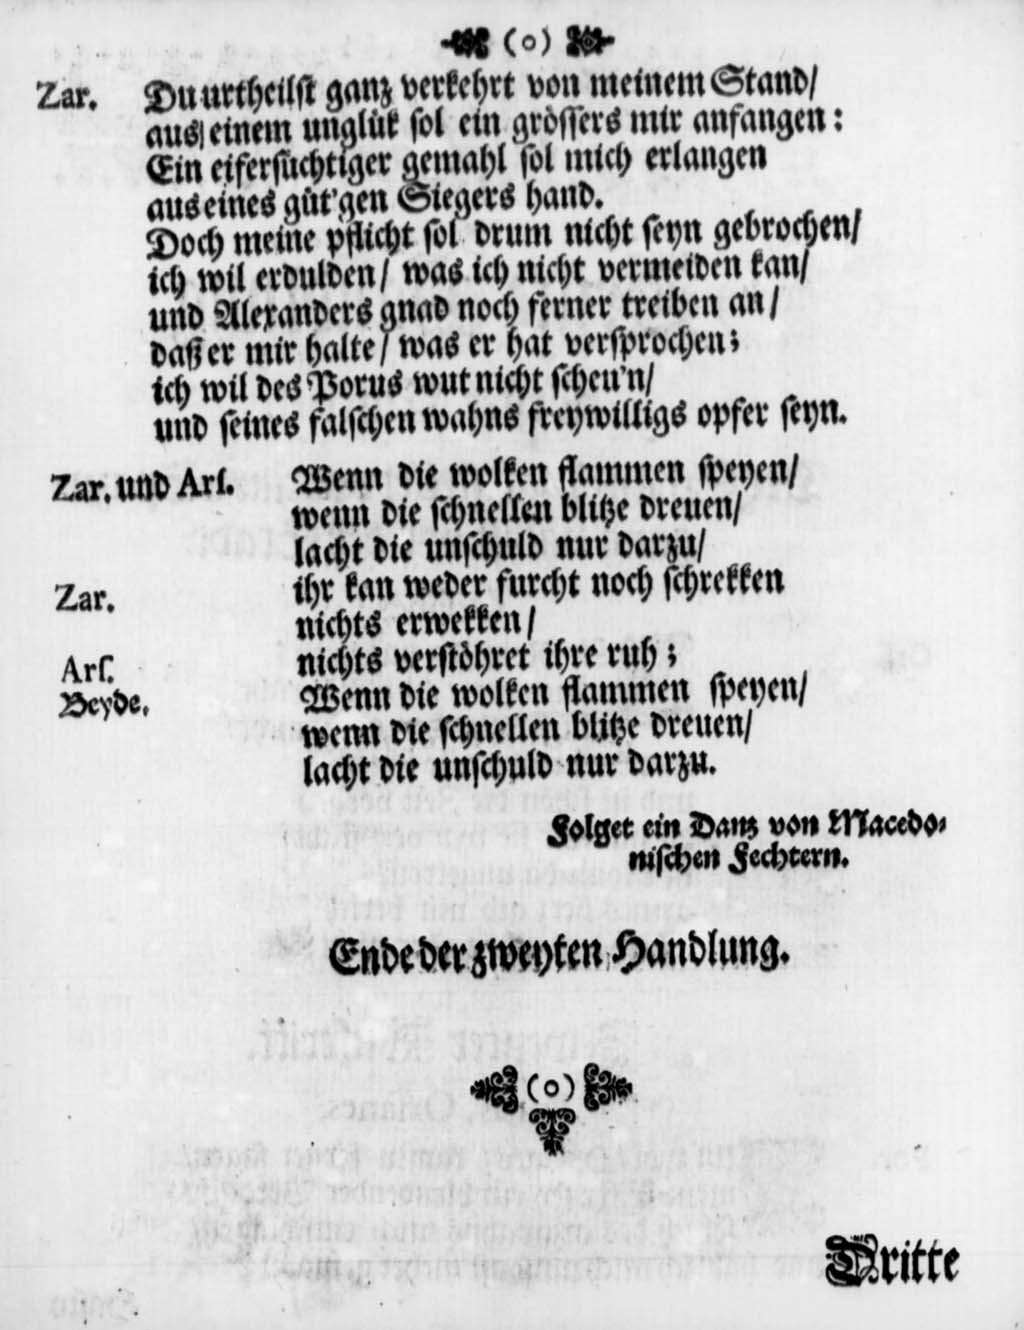 (o)
Zar. Du urtheilst ganz verkehrt von meinem Stand/
aus einem unglük sol ein grössers mir anfangen:
Ein eifersüchtiger gemahl sol mich erlangen
aus eines güt'gen Siegers hand.
Doch meine pflicht sol drum nicht seyn gebrochen/
ich wil erdulden/ was ich nicht vermeiden kan/
und Alexanders gnad noch ferner treiben an/
daß er mir halte/ was er hat versprochen;
ich wil des Porus wut nicht scheu'n/
und seines falschen wahns freywilligs opfer seyn.
Zar. und Ars. Wenn die wolken flammen speyen/
wenn die schnellen blitze dreuen/
lacht die unschuld nur darzu/
Zar. ihr kan weder furcht noch schrekken
nichts erwekken/
Ars. nichts verstöhret ihre ruh;
Beyde. Wenn die wolken flammen speyen/
wenn die schnellen blitze dreuen/
lacht die unschuld nur darzu.
Folget ein Danz von Macedo-
nischen Fechtern.
Ende der zweyten Handlung.
(o)
Dritte